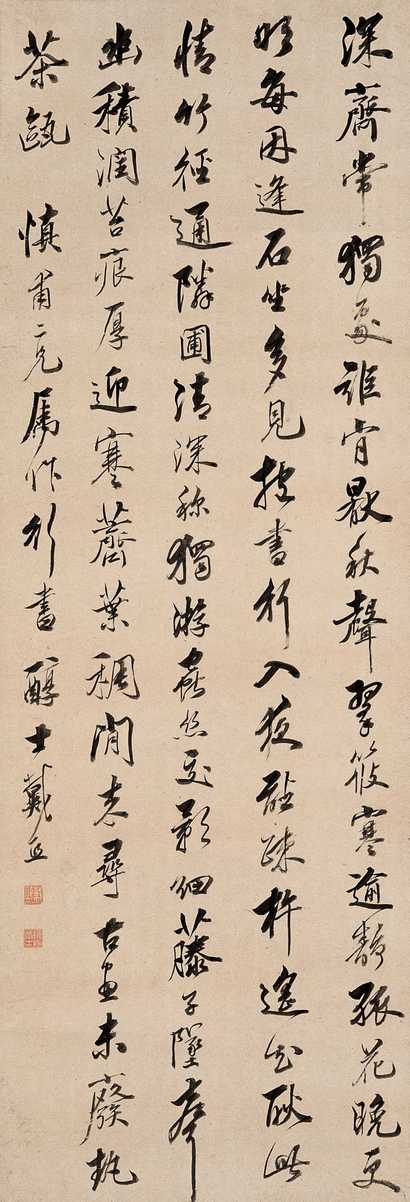 深齋常獨處詎肯厭秋聲翠筱寒逾靜孤花晚更
明每因逢石坐多見抱書行入夜聽疎杵遙知耿此
情竹徑通隣圃清深稱獨游蟲絲交影細藤子墜聲
幽積潤苔痕厚迎寒薺葉稠閒來尋古畫未廢執
茶甌 慎甫二兄屬作行書 醇士戴熙